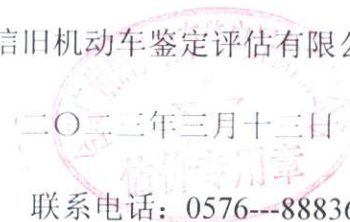 信旧机动车鉴定评估有限公
二〇二三年三月十三日
估价专用章
联系电话：0576---88836